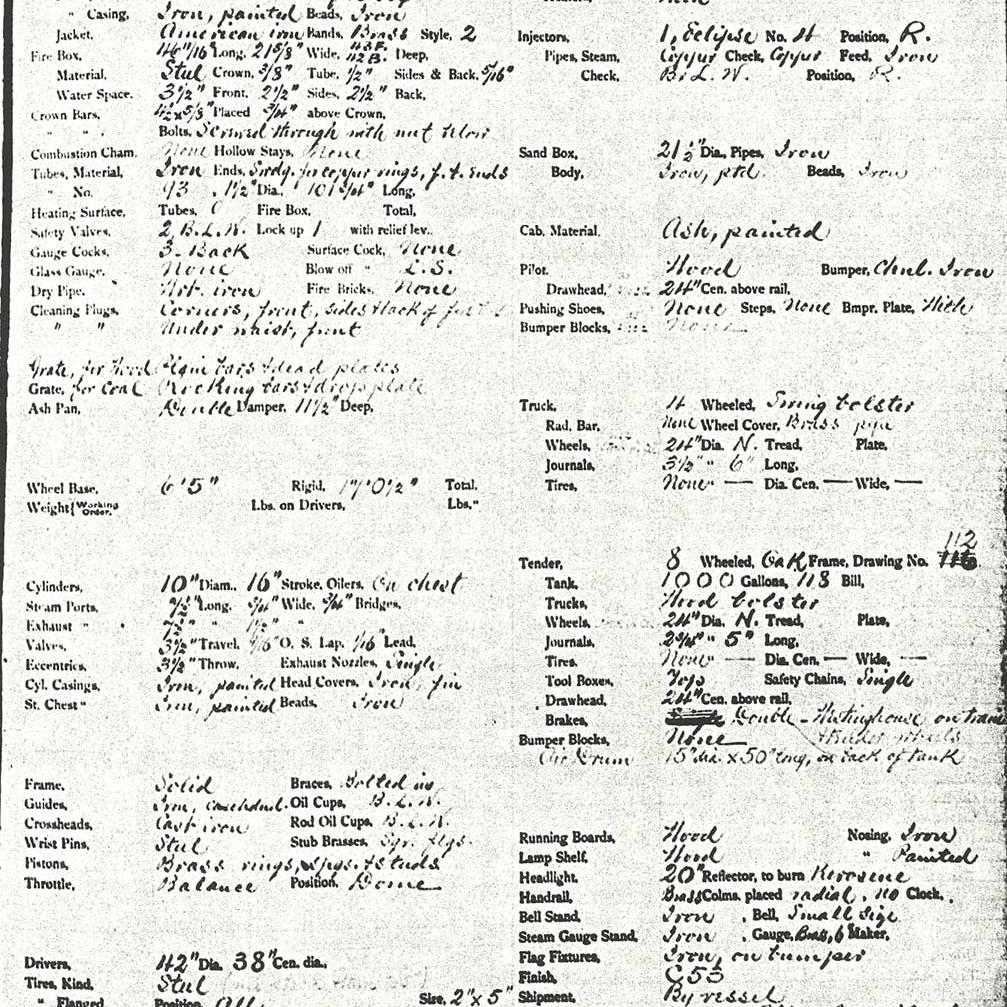 " Casing, Iron, painted Beads, Iron
Jacket, American iron Bands, Brass Style, 2
Fire Box, 46 11/16" Long, 21 5/8" Wide, 43 F. 42 B. Deep,
Material, Steel Crown, 3/8" Tube, 1/2" Sides & Back, 5/16"
Water Space, 3 1/2" Front, 2 1/2" Sides, 2 1/2" Back,
Crown Bars, 4 1/2 x 5/8" Placed 3/4" above Crown,
" " Bolts, Screwed through with nut below
Combustion Cham. None Hollow Stays, None
Tubes, Material, Iron Ends, Swdg. for copper rings, f.t. Ends
" No. 93, 1 1/2" Dia., 101 3/4" Long,
Heating Surface, Tubes, Fire Box, Total,
Safety Valves, 2, B.L.W. Lock up 1 with relief lev.
Gauge Cocks, 3 - Back Surface Cock, None
Glass Gauge, None Blow off " L.S.
Dry Pipe, Wrt. iron Fire Bricks, None
Cleaning Plugs, Corners, front, sides & back of
" " Under waist, front
Grate, for Wood Plain bars & dead plates
Grate, for Coal Rocking bars & drop plate
Ash Pan, Double Damper, 11 1/2" Deep,
Wheel Base, 6'5" Rigid, 17'0 1/2" Total,
Weight { Working Order. Lbs. on Drivers, Lbs."
Cylinders, 10" Diam., 16" Stroke, Oilers, On chest
Steam Ports, 7 1/2" Long, 3/4" Wide, 3/4" Bridges,
Exhaust " 7 1/2" " 1 1/2" "
Valves, 3 1/2" Travel, O. S. Lap, 1/16" Lead,
Eccentrics, 3 1/2" Throw, Exhaust Nozzles, Single
Cyl. Casings, Iron, painted Head Covers, Iron, fin
St. Chest " Iron, painted Beads, Iron
Frame, Solid Braces, Bolted in
Guides, Iron, casehdnd. Oil Cups, B.L.W.
Crossheads, Cast iron Rod Oil Cups, B.L.W.
Wrist Pins, Steel Stub Brasses, Sqr. flgs.
Pistons, Brass rings, spgs. & studs
Throttle, Balance Position, Dome
Drivers, 42" Dia. 38" Cen. dia.,
Tires, Kind, Steel
" Flanged Position, All Size, 2" x 5"
Injectors, 1, Eclipse No. 4 Position, R.
Pipes, Steam, Copper Check, Copper Feed, Iron
Check, B.L.W. Position, R.
Sand Box, 21 1/2" Dia., Pipes, Iron
Body, Iron, ptd. Beads, Iron
Cab, Material, Ash, painted
Pilot, Wood Bumper, Chnl. Iron
Drawhead, 24" Cen. above rail,
Pushing Shoes, None Steps, None Bmpr. Plate, With
Bumper Blocks, None
Truck, 4 Wheeled, Swing bolster
Rad. Bar, None Wheel Cover, Brass
Wheels, 24" Dia. N. Tread, Plate,
Journals, 3 1/2" " 6" Long,
Tires, None — Dia. Cen. — Wide, —
112
Tender, 8 Wheeled, Oak Frame, Drawing No.
Tank, 1000 Gallons, 113 Bill,
Trucks, Wood bolster
Wheels, 24" Dia. N. Tread, Plate,
Journals, 2 3/4" " 5" Long,
Tires, None — Dia. Cen. — Wide, —
Tool Boxes, Tops Safety Chains, Single
Drawhead, 24" Cen. above rail,
Brakes, Double - Westinghouse on
Bumper Blocks, None & tender wheels
Air Drum 15" dia. x 50" long, on back of tank
Running Boards, Wood Nosing, Iron
Lamp Shelf, Wood " Painted
Headlight, 20" Reflector, to burn Kerosene
Handrail, Brass Colms. placed radial, no Clock,
Bell Stand, Iron, Bell, Small Size
Steam Gauge Stand, Iron, Gauge, Brass, 6 Maker,
Flag Fixtures, Iron, on bumper
Finish, C53
Shipment, By vessel